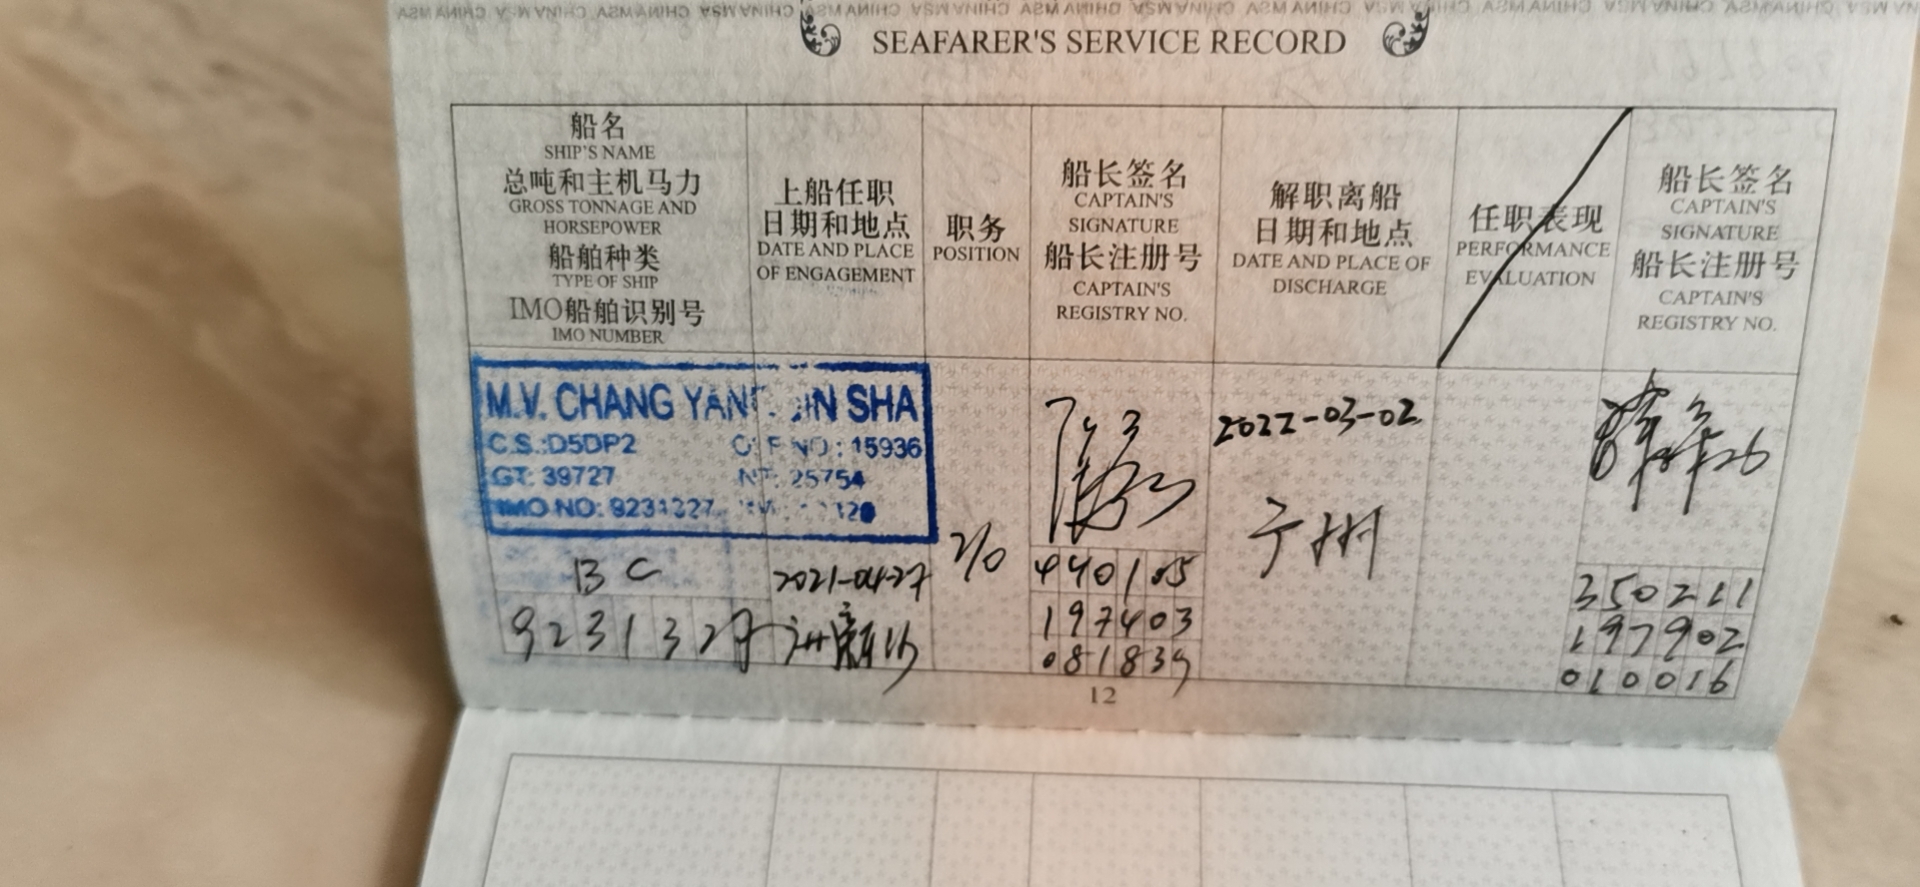 SEAFARER'S SERVICE RECORD
船名
SHIP'S NAME
总吨和主机马力
GROSS TONNAGE AND
HORSEPOWER
船舶种类
TYPE OF SHIP
IMO船舶识别号
IMO NUMBER
上船任职
日期和地点
DATE AND PLACE
OF ENGAGEMENT
职务
POSITION
船长签名
CAPTAIN'S
SIGNATURE
船长注册号
CAPTAIN'S
REGISTRY NO.
解职离船
日期和地点
DATE AND PLACE OF
DISCHARGE
任职表现
PERFORMANCE
EVALUATION
船长签名
CAPTAIN'S
SIGNATURE
船长注册号
CAPTAIN'S
REGISTRY NO.
M.V. CHANG SHA
C.S.:D5DP2 NO: 15936
GT: 39727 NT: 25754
IMO NO:
BC
9231327
2021-04-27
2/0
440105
197403
081839
2022-03-02
广州
350211
197902
010016
12